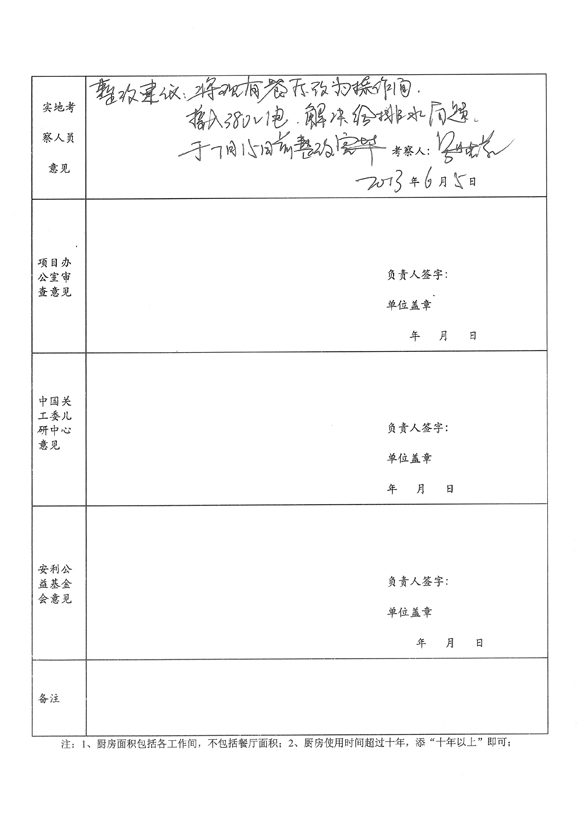 实地考
察人员
意见
整改建议：将现有餐厅改为操作间.
接入380V电.解决给排水问题.
于7月15日前整改完毕 考察人：
2013年6月5日
项目办
公室审
查意见
负责人签字：
单位盖章
年 月 日
中国关
工委儿
研中心
意见
负责人签字：
单位盖章
年 月 日
安利公
益基金
会意见
负责人签字：
单位盖章
年 月 日
备注
注：1、厨房面积包括各工作间，不包括餐厅面积；2、厨房使用时间超过十年，添“十年以上”即可；